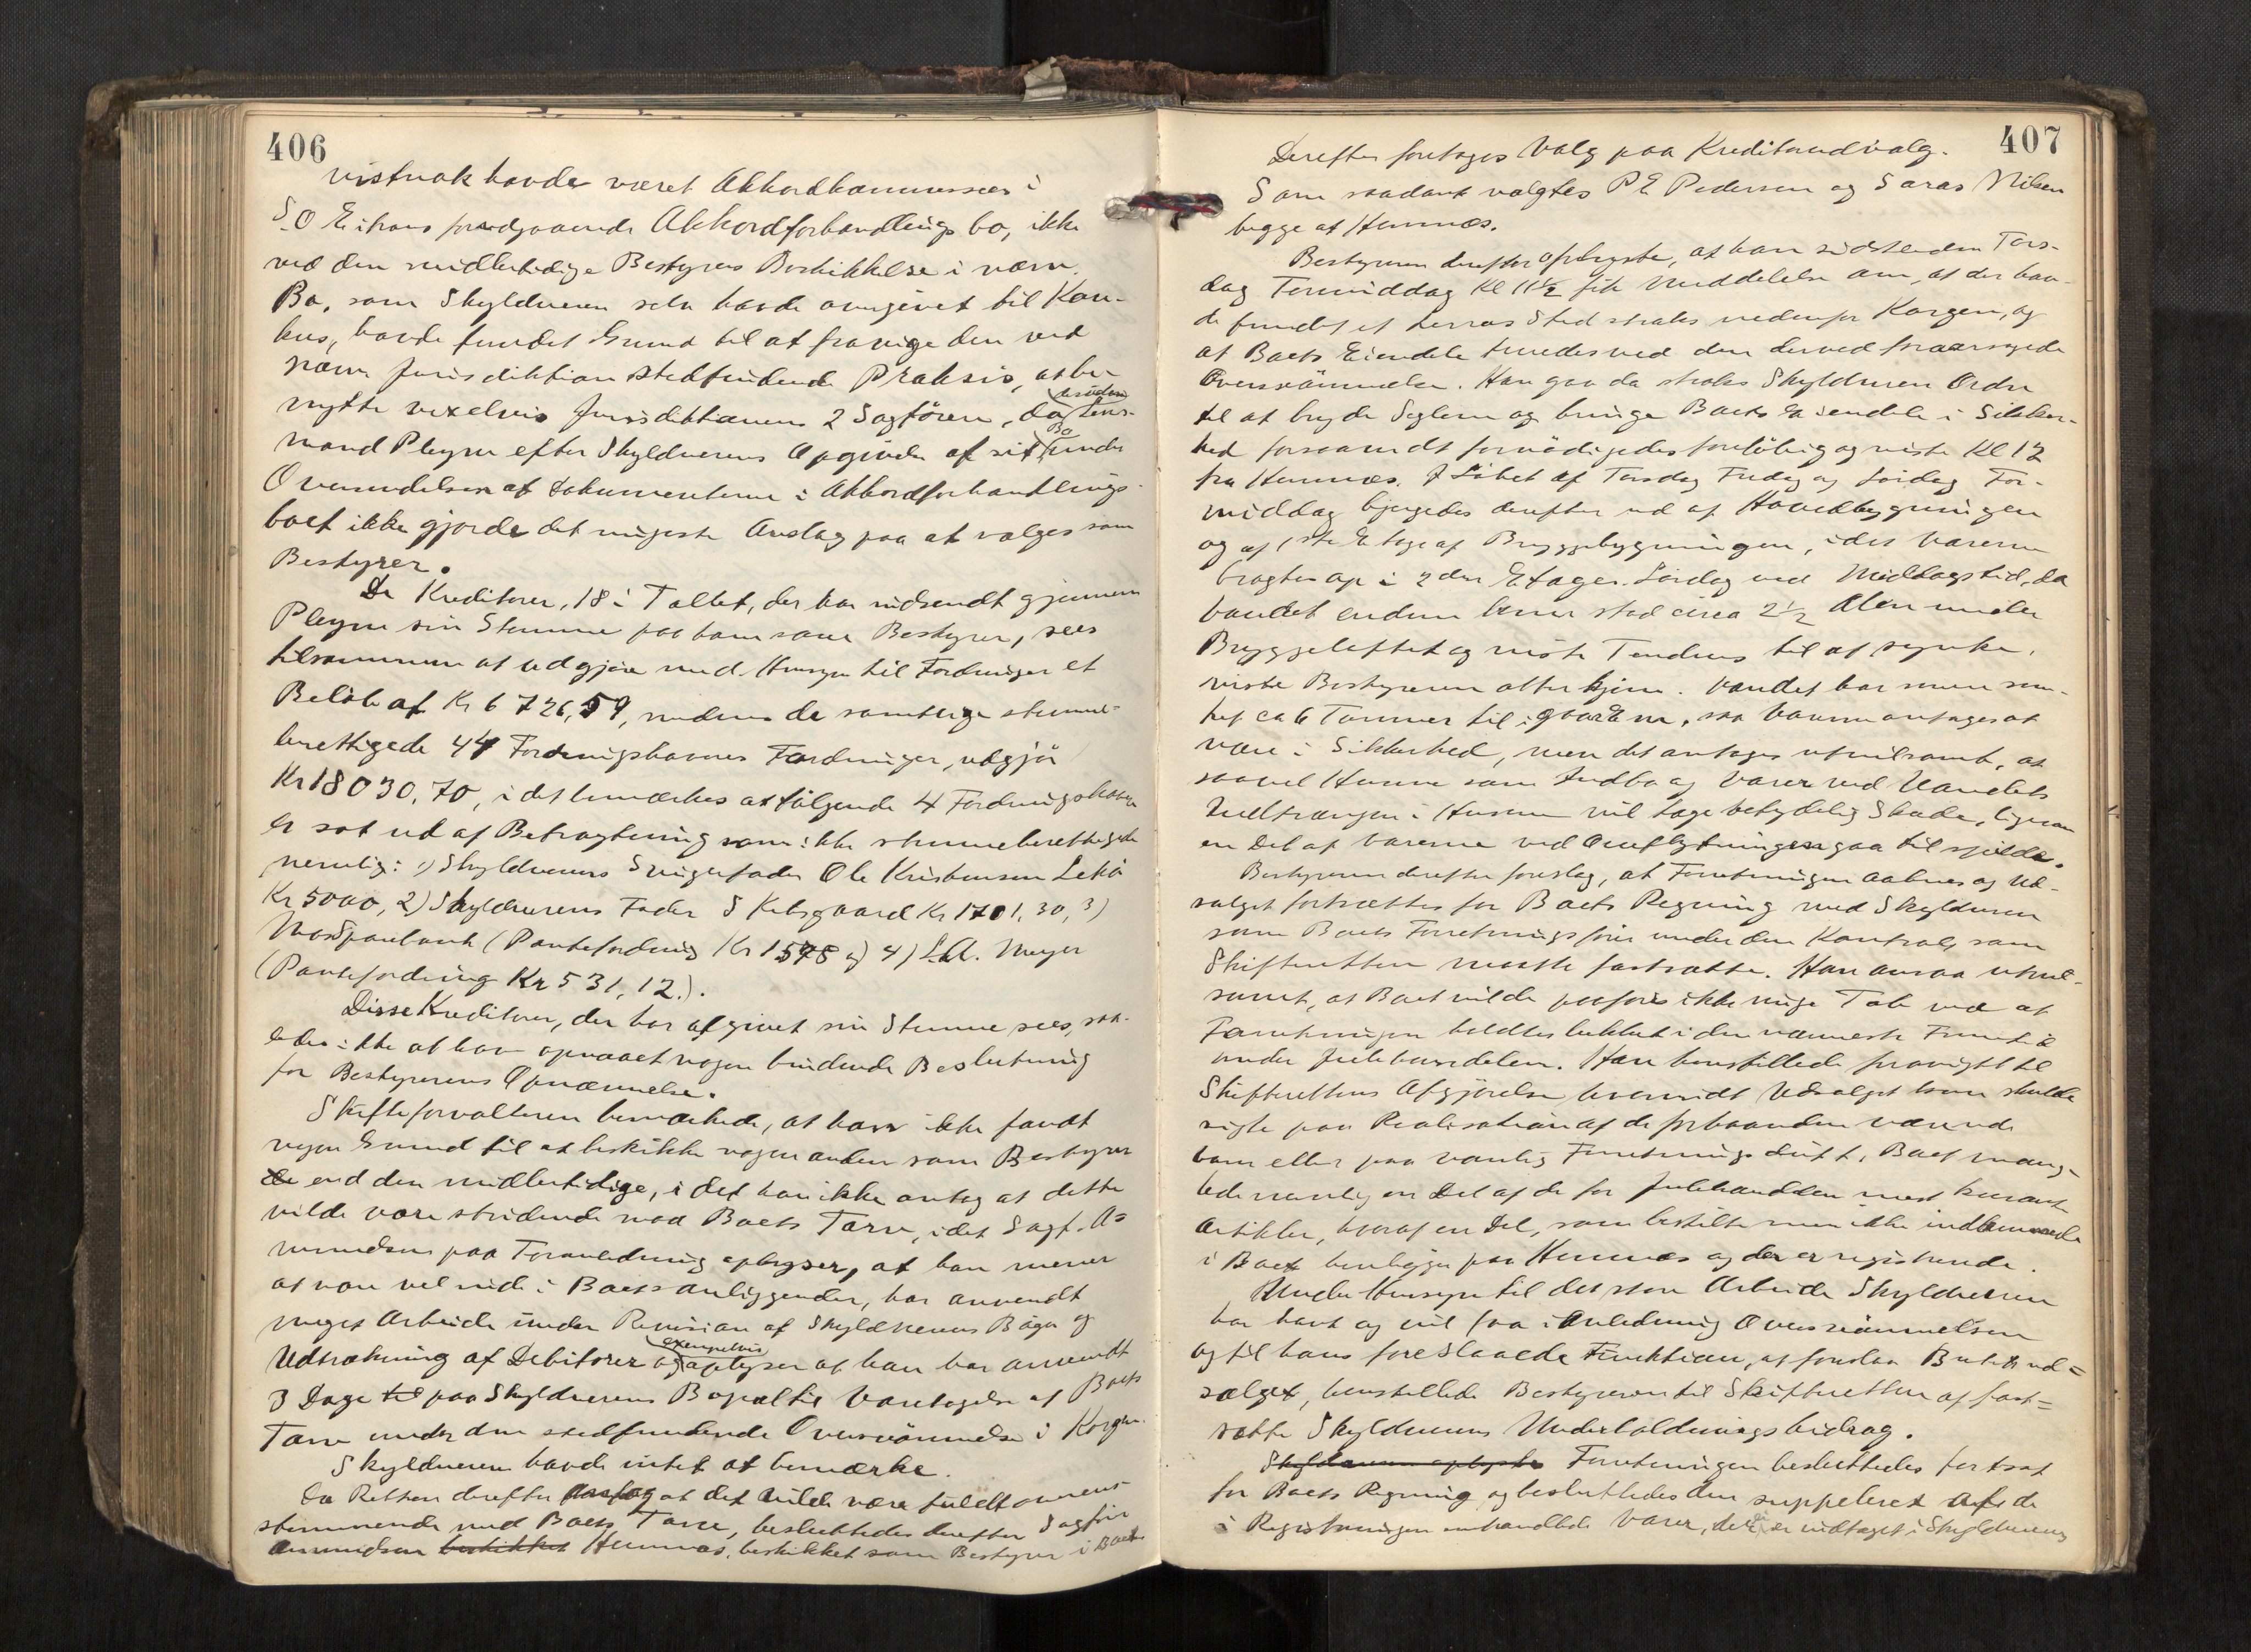 406
vistnok havde været Akkordkommissær i
S. O. Eitrans forudgaaende Akkordforhandlings bo, ikke
ved den midlertidige Bestyrers Beskikkelse i nærv.
Bo, som Skyldneren selv havde overgivet til Kon-
kurs, havde fundet Grund til at fravige den ved
nærv Jurisdiktion stedfindende Praksis, at be-
nytte vexelvis Jurisdiktionens 2 Sagförere, da desuden Lens-
mand Pleym efter Skyldnerens Opgivelse af sit Bo under
Oversendelsen af Dokumenterne i Akkordforhandlings-
boet ikke gjorde det ringeste Anslag paa at vælges som
Bestyrer.
De Kreditorer, 18 i Tallet, der har indsendt gjennem
Pleym sin Stemme paa ham som Bestyrer, sees
tilsammen at udgjöre med Hensyn til Fordringer et
Belöb af Kr 6726,59, medens de samtlige stemme-
berettigede 44 Fordringshavers Fordringer, udgjör
Kr 18030,70, idet bemærkes at fölgende 4 Fordringshavere
er sat ud af Betragtning som ikke stemmeberettigede
nemlig: 1) Skyldnerens Svigerfader Ole Kristensen Lekö
Kr 5000, 2) Skyldnerens Fader S Kibsgaard Kr 1701,30, 3)
Mos Sparebank (Pantefordring Kr 1598 og 4) L.A. Meyer
(Pantefordring Kr 531,12.).
Disse Kreditorer, der har afgivet sin Stemme sees, saa-
ledes ikke at have opnaaet nogen bindende Beslutning
for Bestyrerens Opnævnelse.
Skifteforvalteren bemærkede, at han ikke fandt
nogen Grund til at beskikke nogen anden som Bestyrer
end den midlertidige, idet han ikke antog at dette
vilde være stridende mod Boets Tarv, idet Sagf. A-
mundsen paa Foranledning oplyser, at han mener
at være vel inde i Boets anliggender, har anvendt
meget Arbeide under Revision af Skyldnerens Böger og
Udtrækning af Debitorer og exempelvis oplyser at han har anvendt
3 Dage paa Skyldnerens Bopæl til Varetagelse af Boets
Tarv under den stedfindende Oversvömmelse i Korgen.
Skyldneren havde intet at bemærke.
Da Retten derefter antog at det vilde være fuldt overens-
stemmende med Boets Tarv, besluttedes derefter Sagförer
Amundsen beskikket Hemnæs, beskikket som Bestyrer i Boet
407
Derefter foretoges Valg paa Kreditorudvalg.
Som saadant valgtes P E Pedersen og Saras Nilsen
begge af Hemnæs.
Bestyreren derefter oplyste, at han sidstleden Tors-
dag Formiddag Kl 11½ fik Meddelelse om, at der hav-
de fundet et Sted straks nedenfor Korgen, og
at Boets Eiendele truedes ved den derved foraarsagede
Oversvömmelse. Han gav da straks Skyldneren Ordre
til at bryde Seglene og bringe Boets Eiendele i Sikker-
hed forsaavidt fornödigedes foreløbig og reiste Kl 12
fra Hemnæs. I Löbet af Torsdag Fredag og Lördag For-
middag bjergedes derefter ud af Hovedbygningen
og af 1ste Etage af Bryggebygningen, idet Varerne
bragtes op i 2den Etager. Lördag ved Middagstid, da
vandet endnu stod circa 2½ Alen under
Bryggeloftet og viste Tendens til at synke,
reiste Bestyreren atter hjem. Vandet har senere sun-
ket ca 6 Tommer til igaar Em, saa Varerne antages at
være i Sikkerhed, men det antages utvilsomt, at
saavel Husene som Indbo og Varer ved Vandets
Indtrængen i Husene vil tage betydelig Skade, ligesom
en Del af Varerne ved Omflytningen gaa til spilde.
Bestyreren derefter foreslog, at Forretningen aabnes og Ud-
salget fortsættes for Boets Regning med Skyldneren
som Boets Forretningsförer under den Kontrol, som
Skifteretten maatte fastsætte. Han ansaa utvil-
somt, at Boet vilde paaföres ikke ringe Tab ved at
Forretningen holdtes lukket i den nærmeste Fremtid
under Julehandelen. Han henstillede forövrigt til
Skifterettens Afgjörelse hvorvidt Udsalget kun skulde
sigte paa Realisation af de forhaanden værende
varer eller paa vanlig Forretnings Drift. Boet mang-
lede nemlig en Del af de for Julehandelen mest kurante
Artikler, hvoraf en Del, som bestilte men ikke indkomne
i Boet henligger paa Hemnæs og der er registrerede.
Under Hensyn til det store Arbeide Skyldneren
har havt og vil faa i Anledning Oversvömmelsen
og til hans foreslaaede Funktion, at forestaa Butikud-
salget, henstillede Bestyreren til Skifteretten at fast-
sætte Skyldnerens Underholdningsbidrag.
Skyldneren oplyste Forretningen besluttedes fortsat
for Boets Regning og besluttedes den suppleret af de
i Registreringen omhandlede Varer, der er indtaget i Skyldnerens